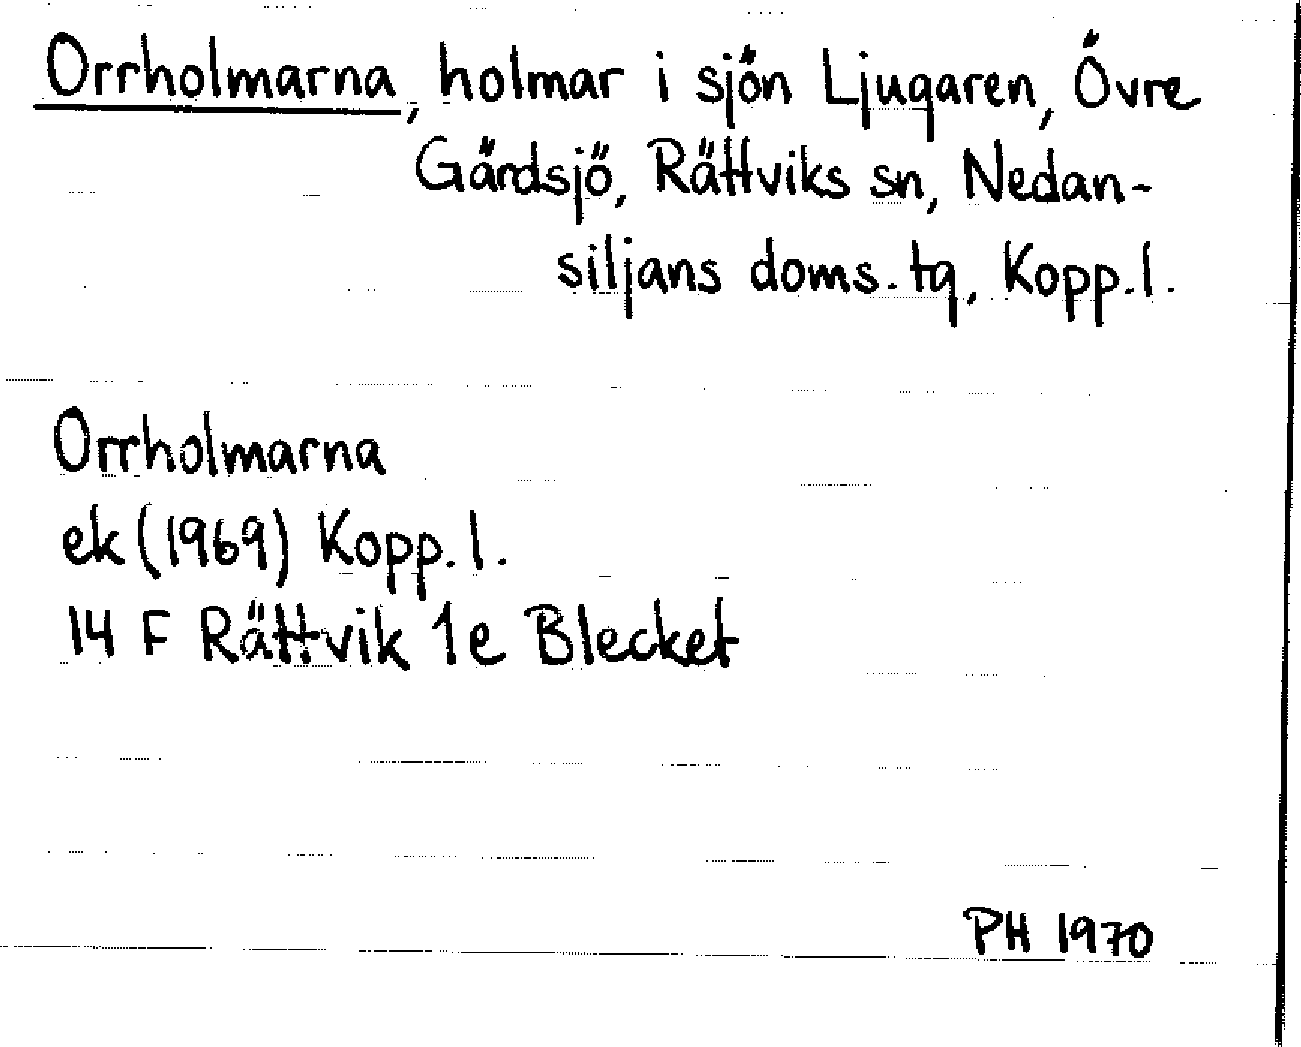 Orrholmarna, holmar i sjön Ljugaren, Övre
Gärdsjö, Rättviks sn, Nedan-
siljans doms. tg, Kopp. l.
Orrholmarna
ek (1969) Kopp. l.
14 F Rättvik 1e Blecket
PH 1970